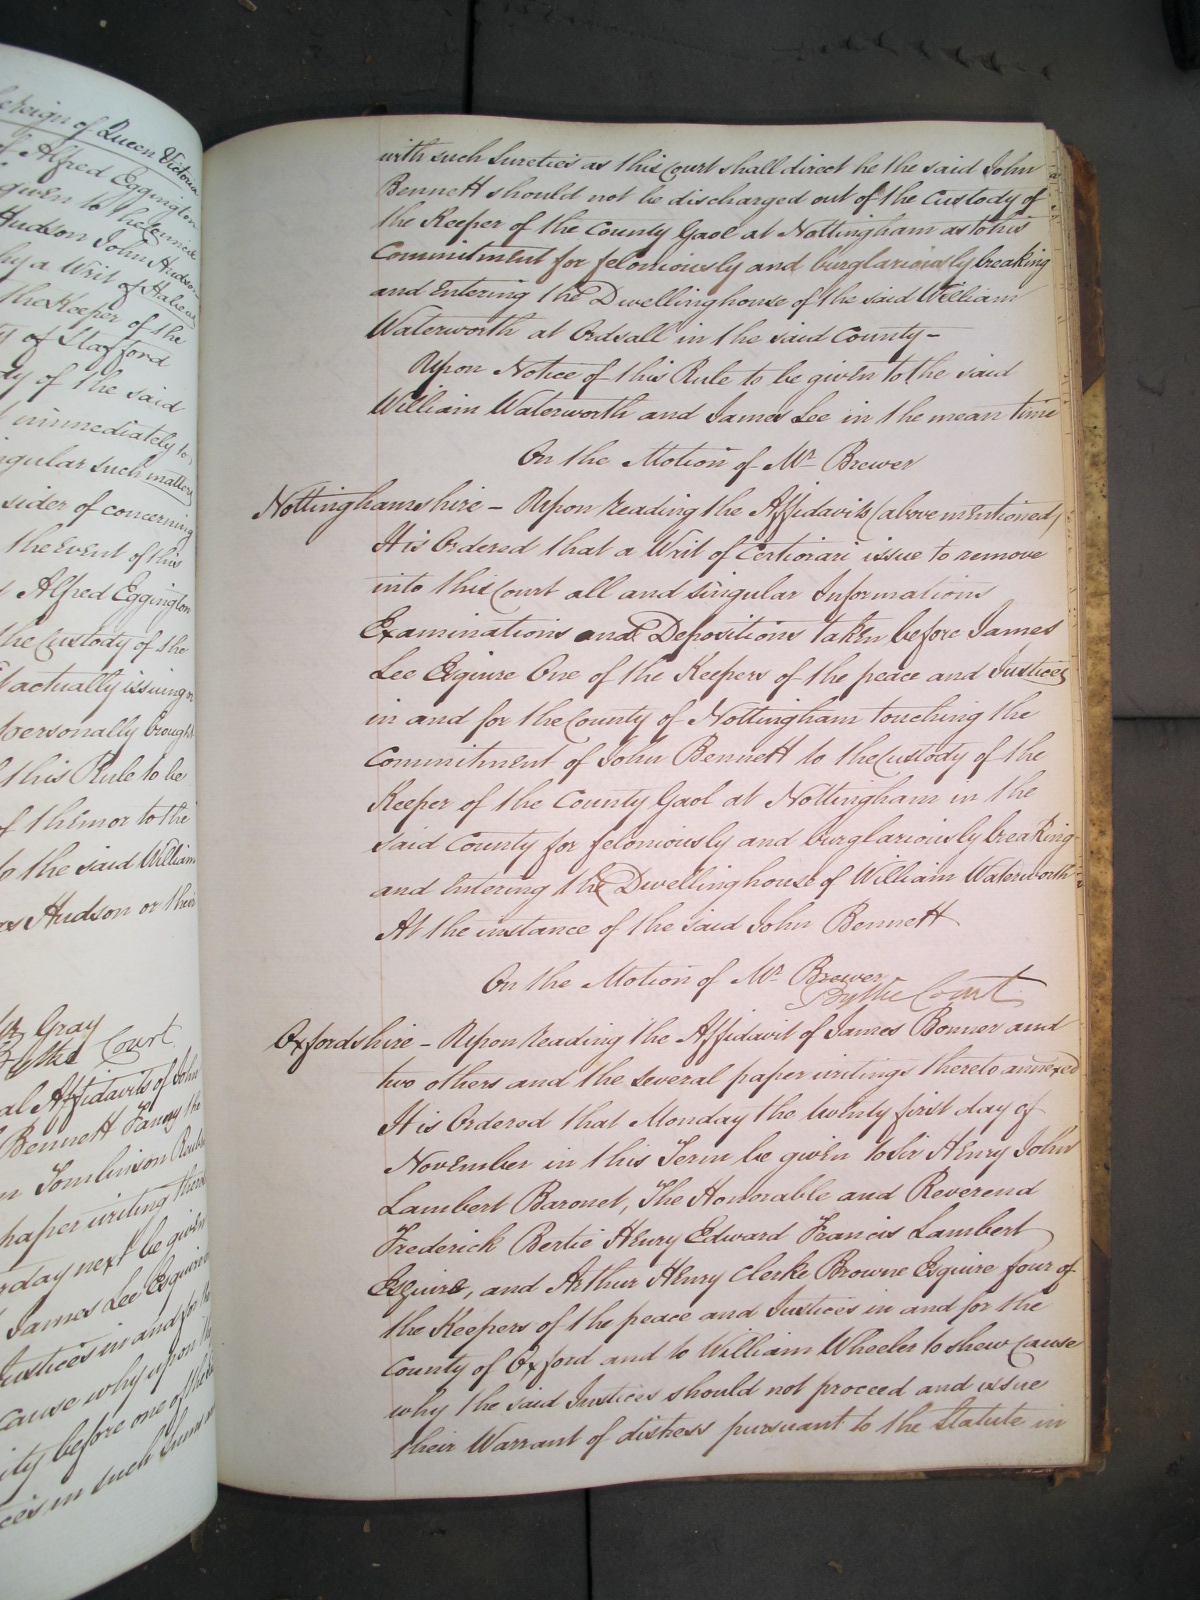 e Reign of Queen Victoria
of Alfred Eggington
given to the Cennick
Hudson John Hudson
by a Writ of Habeas
the Keeper of the
of Stafford
dy of the said
immediately to
ngular such matters
sider of concerning
the Event of this
Alfred Eggington
the Custody of the
actually issuing or
personally brought
this Rule to be
of them or to the
to the said William
Hudson or their
Gray
By the Court
al Affidavits of John
Bennett Fanny the
n Tomlinson
paper writing there
rday next be given
James Lee Esquire
Justices in and for the
cause why upon the
ity before one of the
ces in such sums
with such Sureties as this Court shall direct he the said John
Bennett should not be discharged out of the Custody of
the Keeper of the County Gaol at Nottingham as to his
Commitment for feloniously and burglariously breaking
and Entering the Dwellinghouse of the said William
Waterworth at Ordsall in the said County –
Upon Notice of this Rule to be given to the said
William Waterworth and James Lee in the mean time
On the Motion of Mr Brewer
Nottinghamshire – Upon reading the Affidavits (above mentioned)
It is Ordered that a Writ of Certiorari issue to remove
into this Court all and singular Informations
Examinations and Depositions taken before James
Lee Esquire One of the Keepers of the peace and Justices
in and for the County of Nottingham touching the
Commitment of John Bennett to the Custody of the
Keeper of the County Gaol at Nottingham in the
said County for feloniously and burglariously breaking
and Entering the Dwellinghouse of William Waterworth
At the instance of the said John Bennett
On the Motion of Mr Brewer
By the Court
Oxfordshire – Upon reading the Affidavit of James Bonner and
two others and the several paper writings thereto annexed
It is Ordered that Monday the twenty first day of
November in this Term be given to Sir Henry John
Lambert Baronet, The Honorable and Reverend
Frederick Bertie Henry Edward Francis Lambert
Esquire, and Arthur Henry Clerke Browne Esquire four of
the Keepers of the peace and Justices in and for the
County of Oxford and to William Wheeler to shew cause
why the said Justices should not proceed and issue
their Warrant of distress pursuant to the Statute in